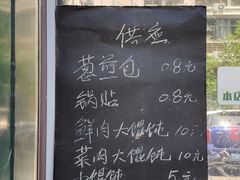 供应
葱煎包 0.8元
锅贴 0.8元
鲜肉大馄饨 10元
菜肉大馄饨 10元
小馄饨 5元
本店